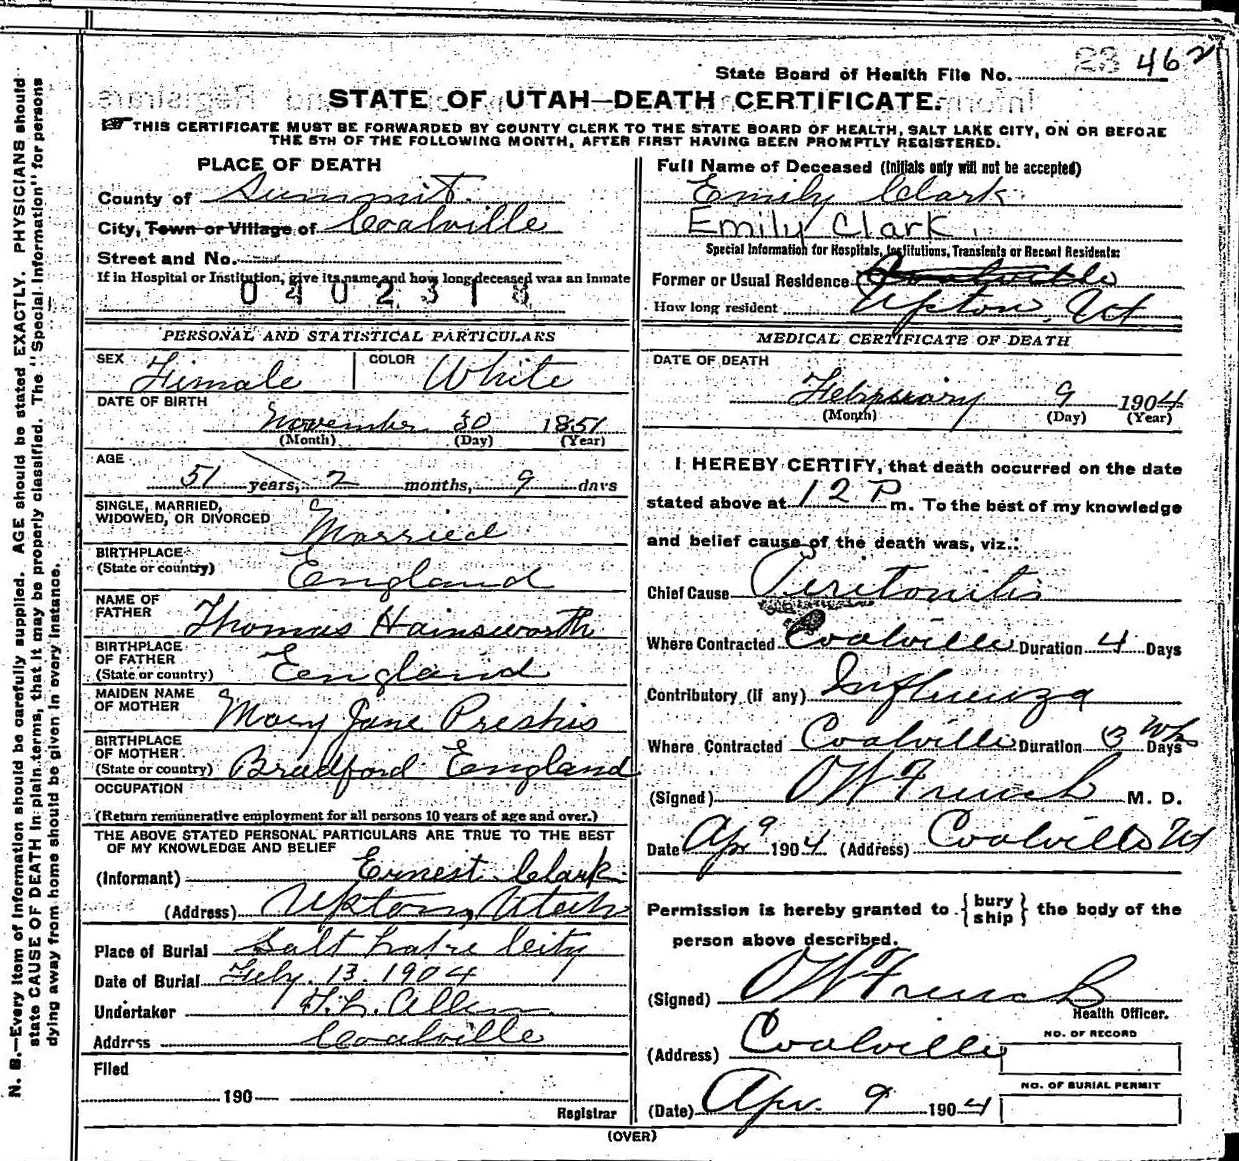 State Board of Health File No. 23 462
STATE OF UTAH—DEATH CERTIFICATE.
THIS CERTIFICATE MUST BE FORWARDED BY COUNTY CLERK TO THE STATE BOARD OF HEALTH, SALT LAKE CITY, ON OR BEFORE
THE 5TH OF THE FOLLOWING MONTH, AFTER FIRST HAVING BEEN PROMPTLY REGISTERED.
PLACE OF DEATH
County of Summit.
City, Town or Village of Coalville
Street and No.
If in Hospital or Institution, give its name and how long deceased was an inmate
0402318
PERSONAL AND STATISTICAL PARTICULARS
SEX Female COLOR White
DATE OF BIRTH
November 30 1851
(Month) (Day) (Year)
AGE
51 years, 2 months, 9 days
SINGLE, MARRIED,
WIDOWED, OR DIVORCED Married
BIRTHPLACE
(State or country) England
NAME OF
FATHER Thomas Hainsworth
BIRTHPLACE
OF FATHER
(State or country) England
MAIDEN NAME
OF MOTHER Mary Jane
BIRTHPLACE
OF MOTHER
(State or country) Bradford England
OCCUPATION
(Return remunerative employment for all persons 10 years of age and over.)
THE ABOVE STATED PERSONAL PARTICULARS ARE TRUE TO THE BEST
OF MY KNOWLEDGE AND BELIEF
(Informant) Ernest Clark
(Address) Upton, Utah
Place of Burial Salt Lake City
Date of Burial Feby. 13. 1904
Undertaker Allen
Address Coalville
Filed
190
Registrar
Full Name of Deceased (Initials only will not be accepted)
Emily Clark
Emily Clark
Special Information for Hospitals, Institutions, Transients or Recent Residents:
Former or Usual Residence Coalville
How long resident Upton, Ut
MEDICAL CERTIFICATE OF DEATH
DATE OF DEATH
February 9 1904
(Month) (Day) (Year)
I HEREBY CERTIFY, that death occurred on the date
stated above at 12 P m. To the best of my knowledge
and belief cause of the death was, viz.:
Chief Cause Peritonitis
Where Contracted Coalville Duration 4 Days
Contributory (if any) Influenza
Where Contracted Coalville Duration 3 Wks Days
(Signed) O W French M. D.
Date Apr 9 1904 (Address) Coalville Ut
Permission is hereby granted to {bury
ship} the body of the
person above described.
(Signed) O W French
Health Officer.
(Address) Coalville
NO. OF RECORD
NO. OF BURIAL PERMIT
(Date) Apr. 9 1904
(OVER)
N. B.—Every item of information should be carefully supplied. AGE should be stated EXACTLY. PHYSICIANS should
state CAUSE OF DEATH in plain terms, that it may be properly classified. The "Special Information" for persons
dying away from home should be given in every instance.